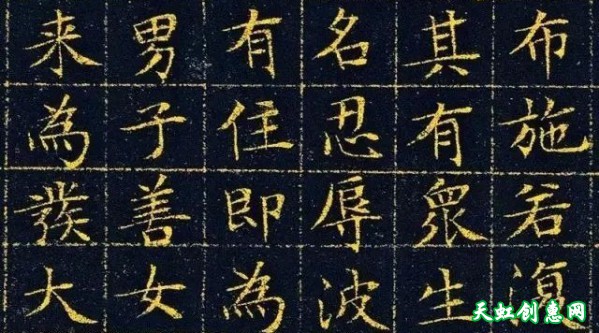 布施若復
其有眾生
名忍辱波
有住即為
男子善女
来為發大
天虹创惠网